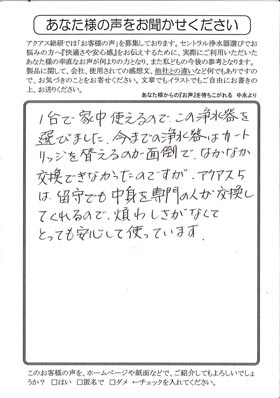 あなた様の声をお聞かせください
アクアス総研では「お客様の声」を募集しております。セントラル浄水器選びでお
悩みの方へ『快適さや安心感』をお伝えするために、実際にご利用いただいた
あなた様の率直なお声が何よりの力となり、また私どもの今後の参考となります。
製品に関して、会社、使用されての感想文、他社との違いなど何でもありますの
で、お気づきのことをお寄せください。文章でもイラストでもご自由にお書きの
上、お送りください。
あなた様からの『お声』を待ちこがれる 中永より
1台で家中使えるので、この浄水器を
選びました。今までの浄水器はカート
リッジを替えるのが面倒で、なかなか
交換できなかったのですが、アクアス5
は、留守でも中身を専門の人が交換し
てくれるので、煩わしさがなくて
とっても安心して使っています。
このお客様の声を、ホームページや紙面などで、ご紹介してもよろしいでしょ
うか? □はい □匿名で □ダメ ←チェックを入れてください。